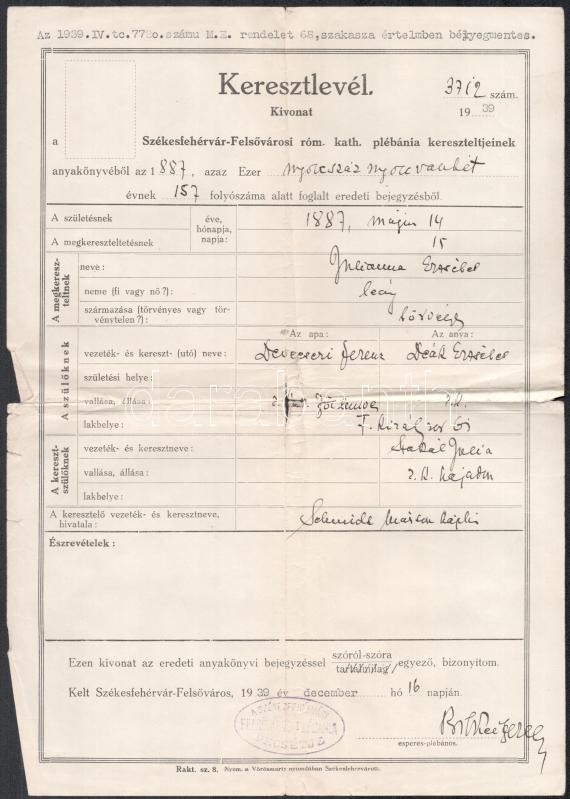 Az 1939.IV.tc.7780.számu M.E. rendelet 68,szakasza értelmben bélyegmentes.
Keresztlevél.
3712 szám.
Kivonat
1939
a Székesfehérvár-Felsővárosi róm. kath. plébánia kereszteltjeinek
anyakönyvéből az 1887, azaz Ezer nyolcszáz nyolcvanhét
évnek 157 folyószáma alatt foglalt eredeti bejegyzésből.
A születésnek éve, 1887, május 14
hónapja,
A megkereszteltetésnek napja: 15
A megkeresz-
teltnek
neve: Julianna Erzsébet
neme (fi vagy nő?): leány
származása (törvényes vagy tör-
vénytelen?):
A szülőknek
Az apa: Az anya:
vezeték- és kereszt- (utó) neve: Devecseri Ferenc Deák Erzsébet
születési helye:
vallása, állása: földműves
lakhelye:
A kereszt-
szülőknek
vezeték- és keresztneve: Julia
vallása, állása: hajadon
lakhelye:
A keresztelő vezeték- és keresztneve,
hivatala:
Észrevételek:
szóról-szóra
Ezen kivonat az eredeti anyakönyvi bejegyzéssel tartalmilag egyező, bizonyítom.
Kelt Székesfehérvár-Felsőváros, 1939 év december hó 16 napján.
esperes-plébános.
Rakt. sz. 8. Nyom. a Vörösmarty nyomdában Székesfehérvárott.
darabanth